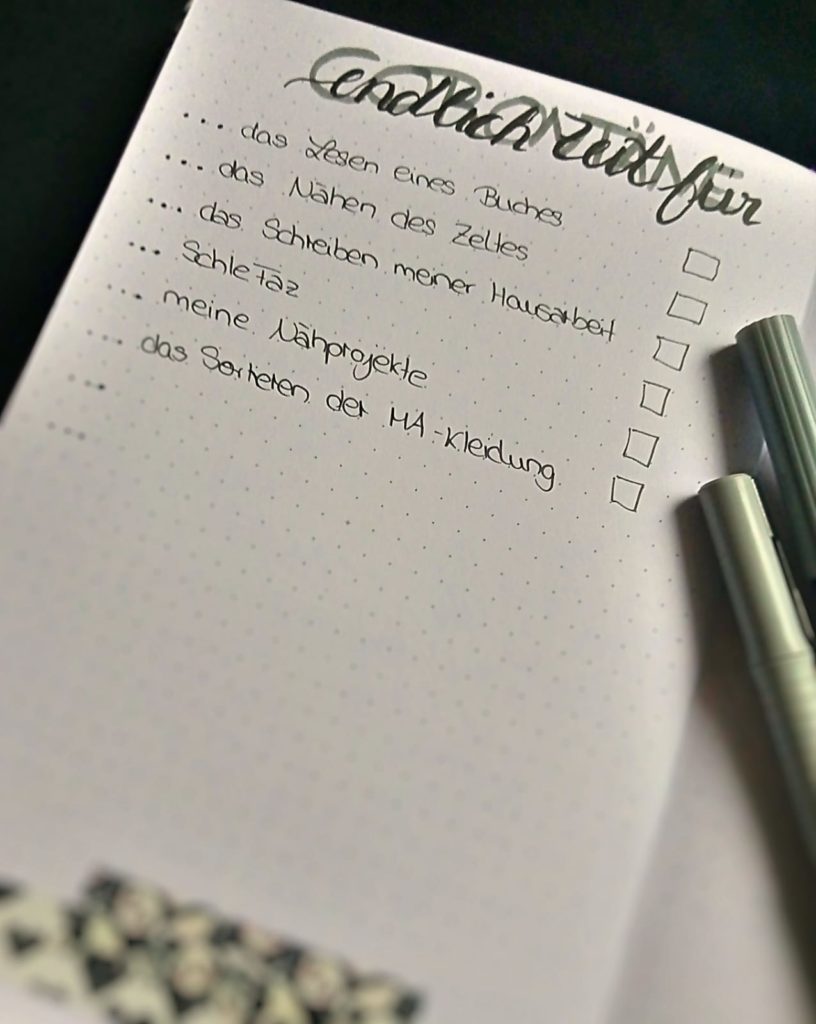 endlich Zeit für
... das Lesen eines Buches
... das Nähen des Zeltes
... das Schreiben meiner Hausarbeit
... SchleFaz
... meine Nähprojekte
... das Sortieren der MA-Kleidung
...
...